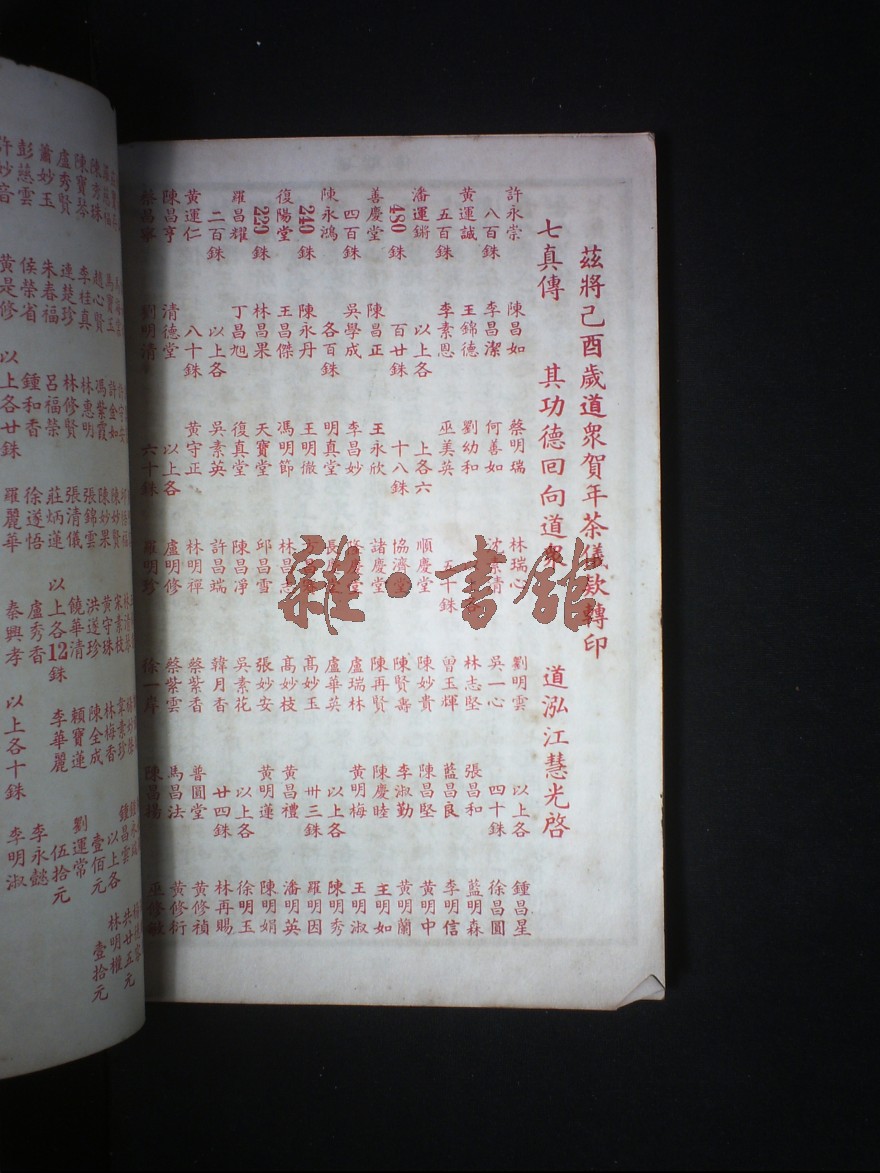 茲將己酉歲道眾賀年茶儀欵轉印
七真傳 其功德回向道眾 道泓江慧光啓
許永崇 陳昌如 蔡明瑞 林瑞心 劉明雲 以上各 鍾昌星
八百銖 李昌潔 何善如 吳一心 四十銖 徐昌圓
黃運誠 王錦德 劉幼和 林志堅 張昌和 藍明森
五百銖 李素恩 巫美英 五十銖 曾玉輝 藍昌良 李明信
潘運鏘 以上各 上各六 順慶堂 陳妙貴 陳昌堅 黃明中
480銖 百廿銖 十八銖 協濟堂 陳賢壽 李淑勤 黃明蘭
善慶堂 陳昌正 王永欣 諸慶堂 陳再賢 陳慶睦 王明如
四百銖 吳學成 李昌妙 盧瑞林 黃明梅 王明淑
陳永鴻 各百銖 明真堂 盧華英 以上各 陳明秀
240銖 陳永丹 王明徹 高妙玉 卅三銖 羅明因
復陽堂 王昌傑 馮明節 林昌志 高妙枝 黃昌禮 潘明英
229銖 林昌果 天寶堂 邱昌雪 張妙安 黃明蓮 陳明娟
羅昌耀 丁昌旭 復真堂 陳昌淨 吳素花 以上各 徐明玉
二百銖 以上各 吳素英 許昌瑞 韓月香 廿四銖 林再賜
黃運仁 八十銖 黃守正 林明禪 蔡紫香 普圓堂 黃修禎
陳昌亨 清德堂 以上各 盧明修 蔡紫雲 馬昌法 黃修衍
劉明清 六十銖 羅明珍 徐一岸 陳昌楊 巫修敏
陳秀珠 趙心賢 馮紫霞 陳妙果 黃守珠 林梅香 以上各 林明權
陳寶琴 李桂真 林惠明 張錦雲 洪遂珍 陳全成 壹佰元 壹拾元
盧秀賢 連楚珍 林修賢 張清儀 饒華清 賴寶蓮 劉運常
蕭妙玉 朱春福 呂福榮 莊炳蓮 以上各12銖 李華麗 伍拾元
彭慈雲 侯榮省 鍾和香 徐遂悟 盧秀香 李永懿
許妙音 黃是修 以上各廿銖 羅麗華 秦興孝 以上各十銖 李明淑
雜·書館